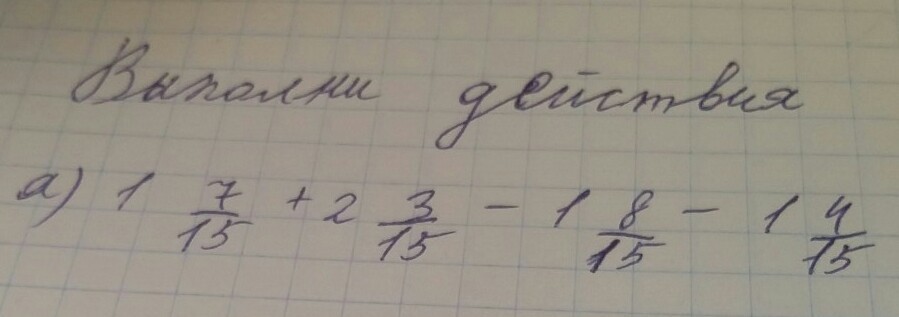 Выполни действия
а) 1 7/15 + 2 3/15 - 1 8/15 - 1 4/15